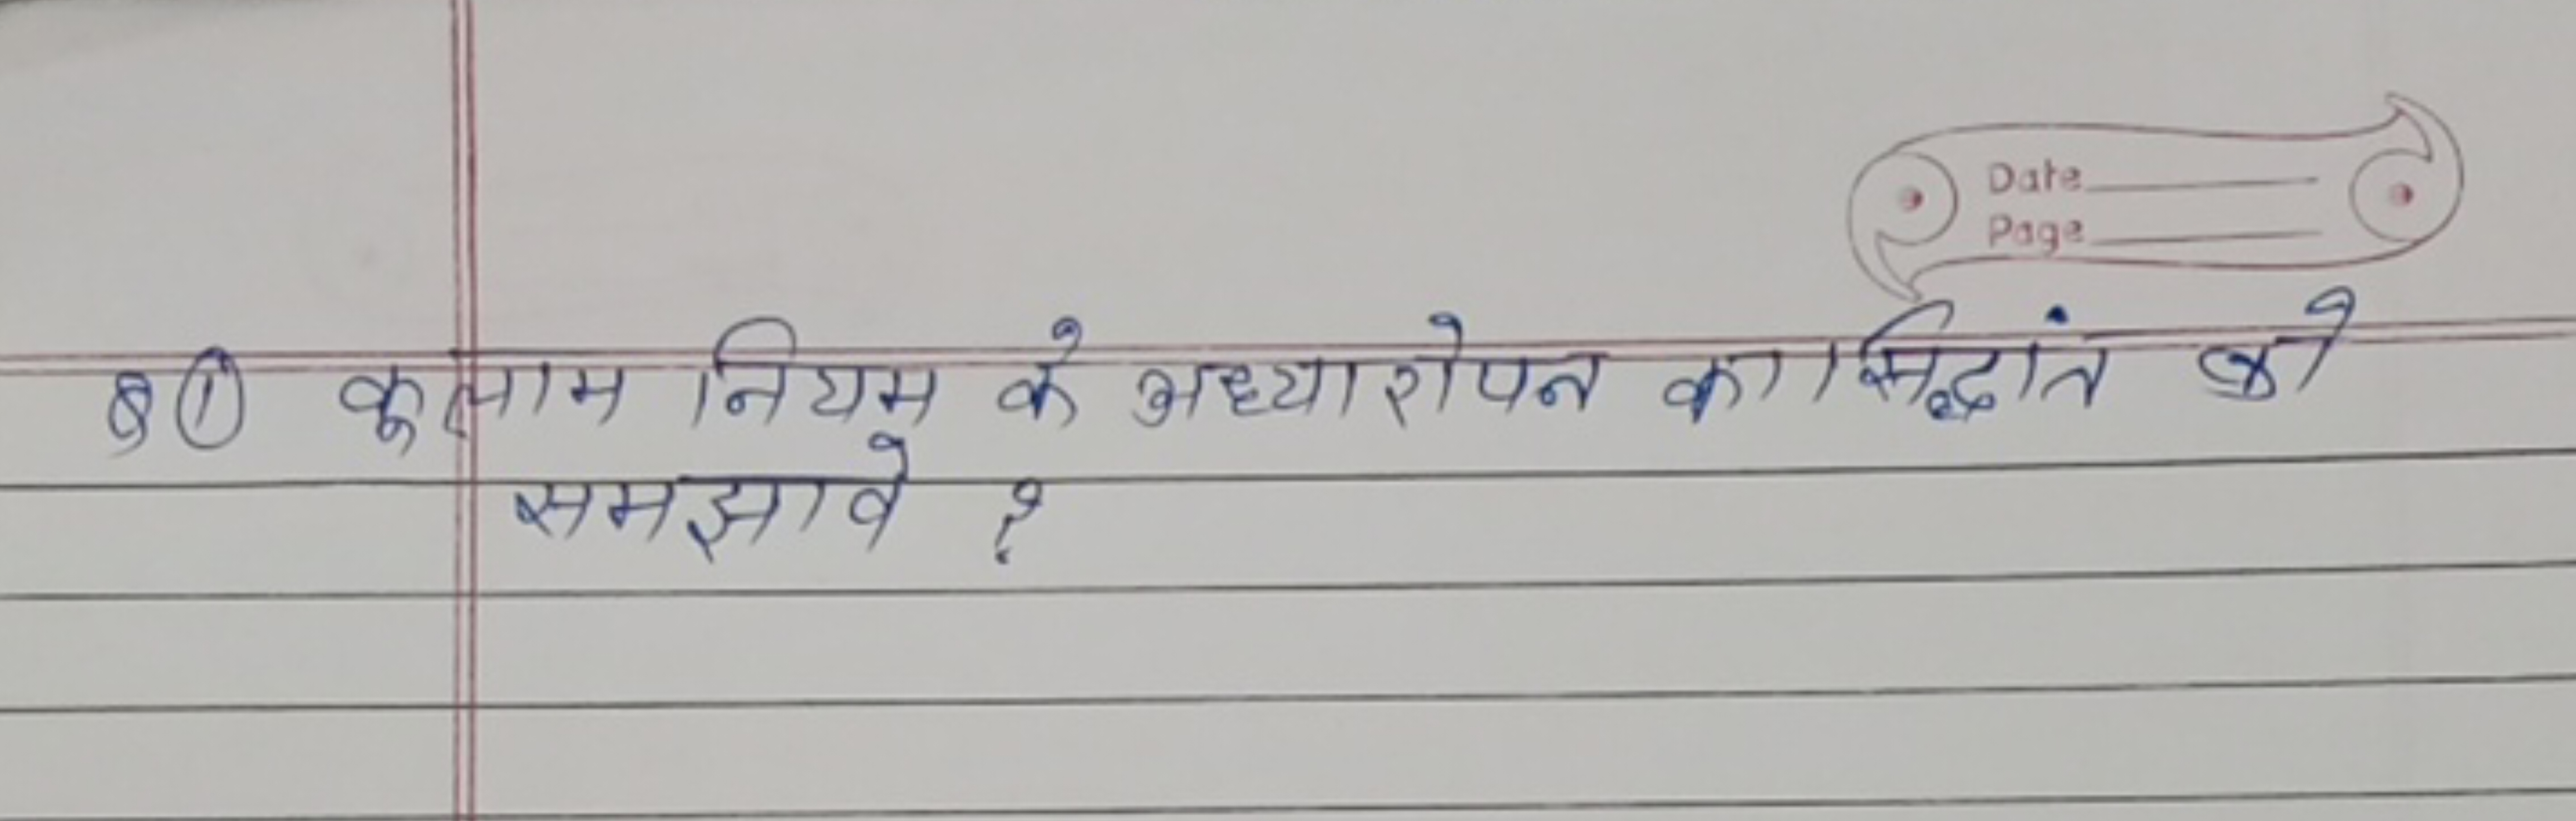 Date
Page
8 ① कूलाम नियम के अध्यारोपन का सिद्धांत को
समझावे ?